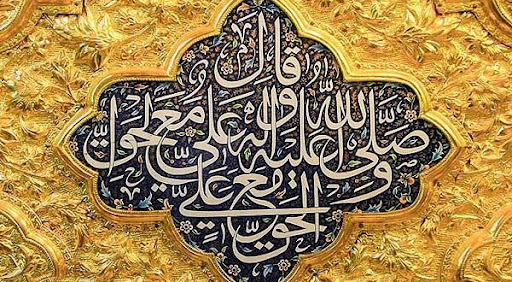 وقال
صلى الله عليه وآله علي مع الحق
والحق مع علي